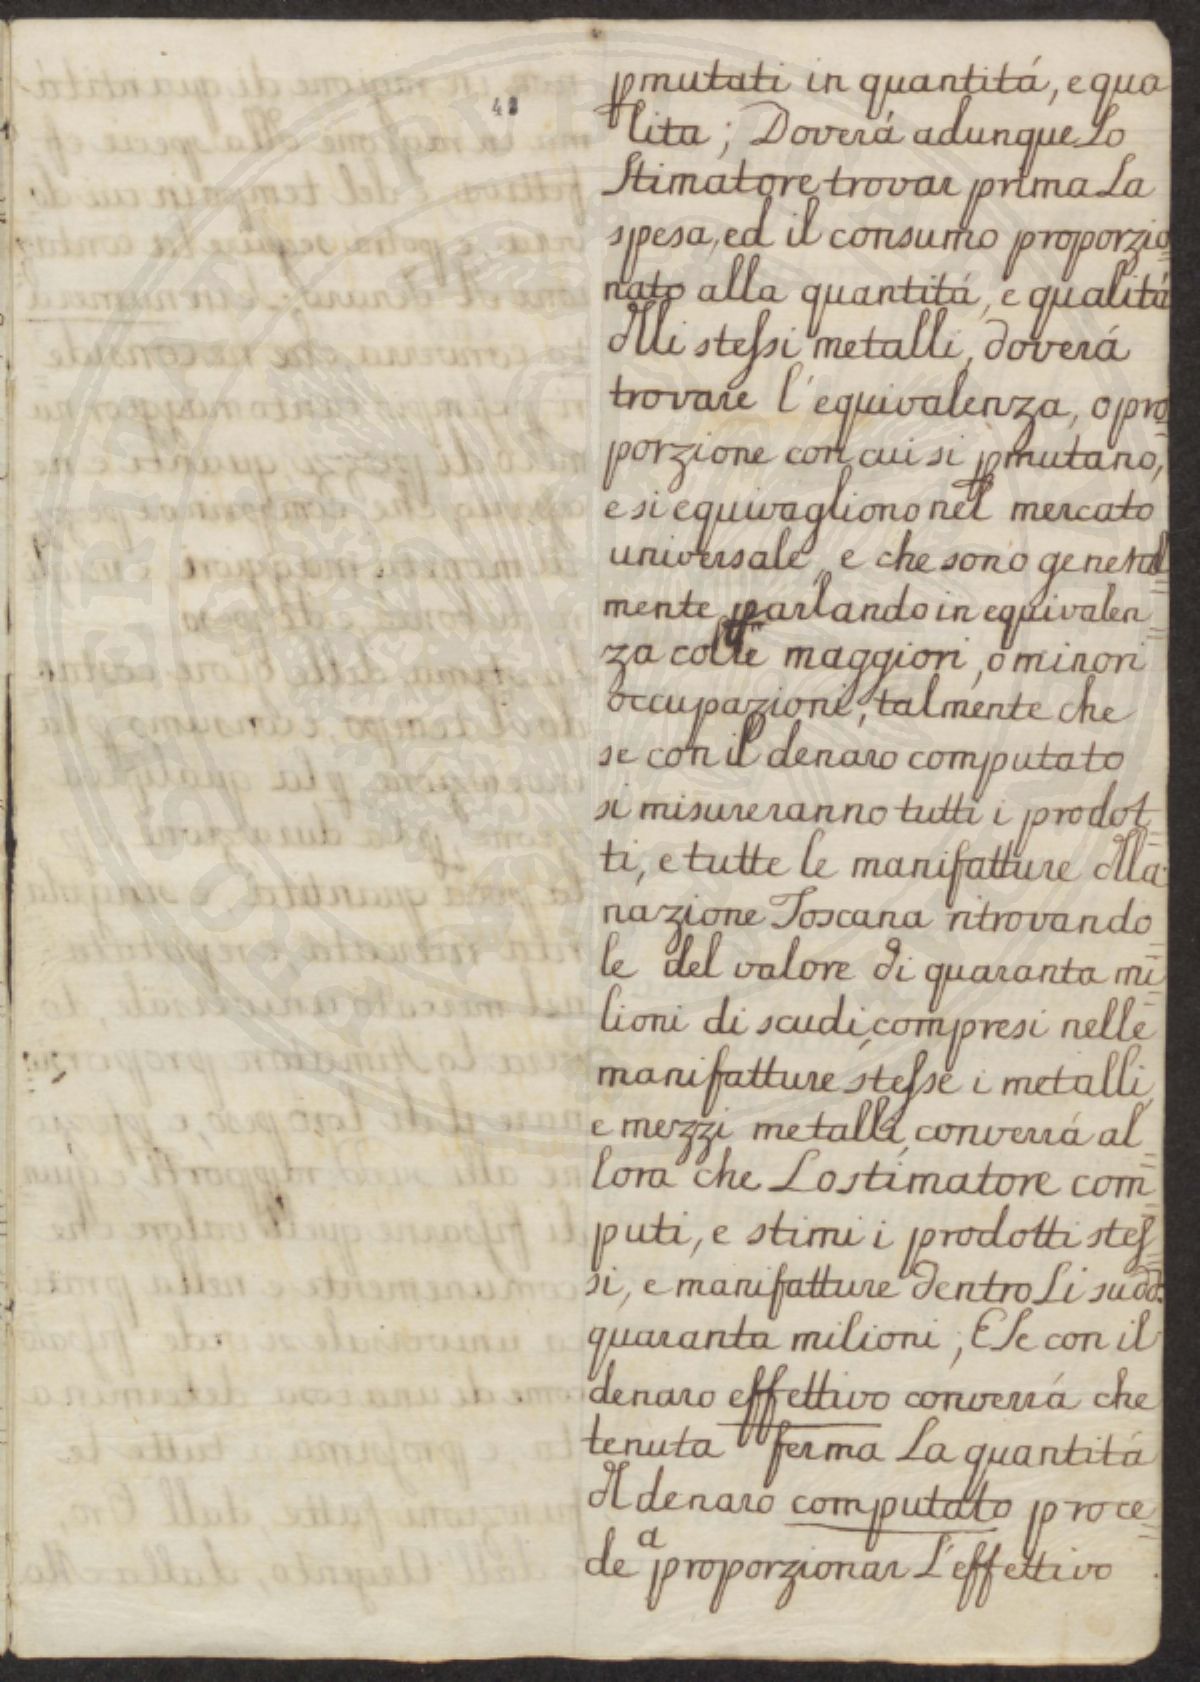 48
pmutati in quantitá, e qua
lita; Doverá adunque Lo
Stimatore trovar prima La
spesa, ed il consumo proporzio
nato alla quantitá, e qualitá
dlli stessi metalli, doverá
trovare l'equivalenza, o pro
porzione con cui si pmutano,
e si equivagliono nel mercato
universale, e che sono general=
mente parlando in equivalen=
za colle maggiori, o minori
occupazioni, talmente che
se con il denaro computato
si misureranno tutti i prodot=
ti, e tutte le manifatture dlla
nazione Toscana ritrovando
le del valore di quaranta mi=
lioni di scudi, compresi nelle
manifatture stesse i metalli,
e mezzi metalli, converrá al=
lora che Lo stimatore com=
puti, e stimi i prodotti stes=
si, e manifatture dentro Li sudd.
quaranta milioni; E Se con il
denaro effettivo converrá che
tenuta ferma La quantitá
dl denaro computato proce=
de a proporzionar L'effettivo